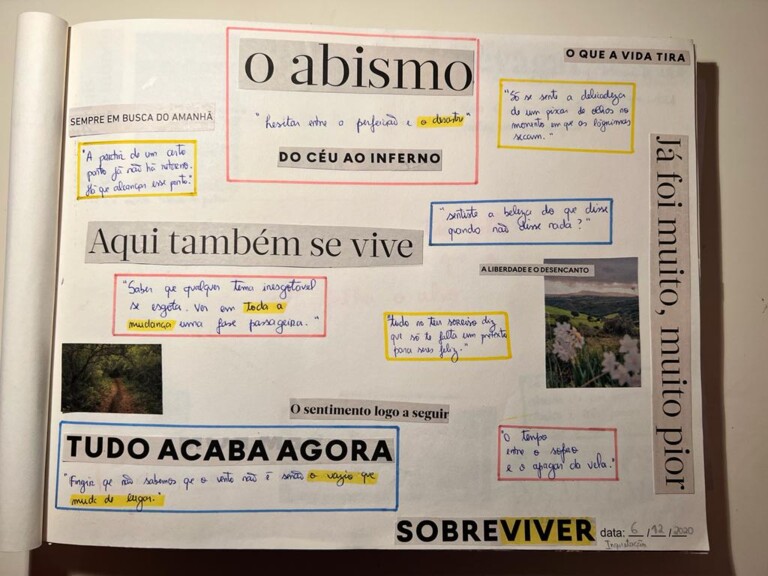 o abismo
O QUE A VIDA TIRA
"hesitar entre a perfeição e o desastre"
DO CÉU AO INFERNO
SEMPRE EM BUSCA DO AMANHÃ
"Só se sente a delicadeza
de um piscar de olhos no
momento em que as lágrimas
secam."
"A partir de um certo
ponto já não há retorno.
Há que alcançar esse ponto."
Já foi muito, muito pior
"sentiste a beleza do que disse
quando não disse nada?"
Aqui também se vive
A LIBERDADE E O DESENCANTO
"Saber que qualquer tema inesgotável
se esgota. Ver em toda a
mudança uma fase passageira."
"tudo no teu sorriso diz
que só te falta um pretexto
para seres feliz."
O sentimento logo a seguir
TUDO ACABA AGORA
"Fingia que não sabemos que o vento não é senão o vazio que
muda de lugar."
"O tempo
entre o sopro
e o apagar da vela."
SOBREVIVER
data: 6 / 12 / 2020
Inquietação